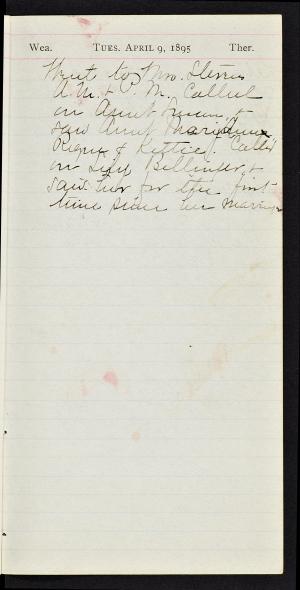 Wea. TUES. APRIL 9, 1895 Ther.
Went to Mrs. Sterns
A.M. & P.M. Called
on Aunt &
saw Aunt
& Kittie. Called
on Bellinger &
saw her for the first
time since her marriage